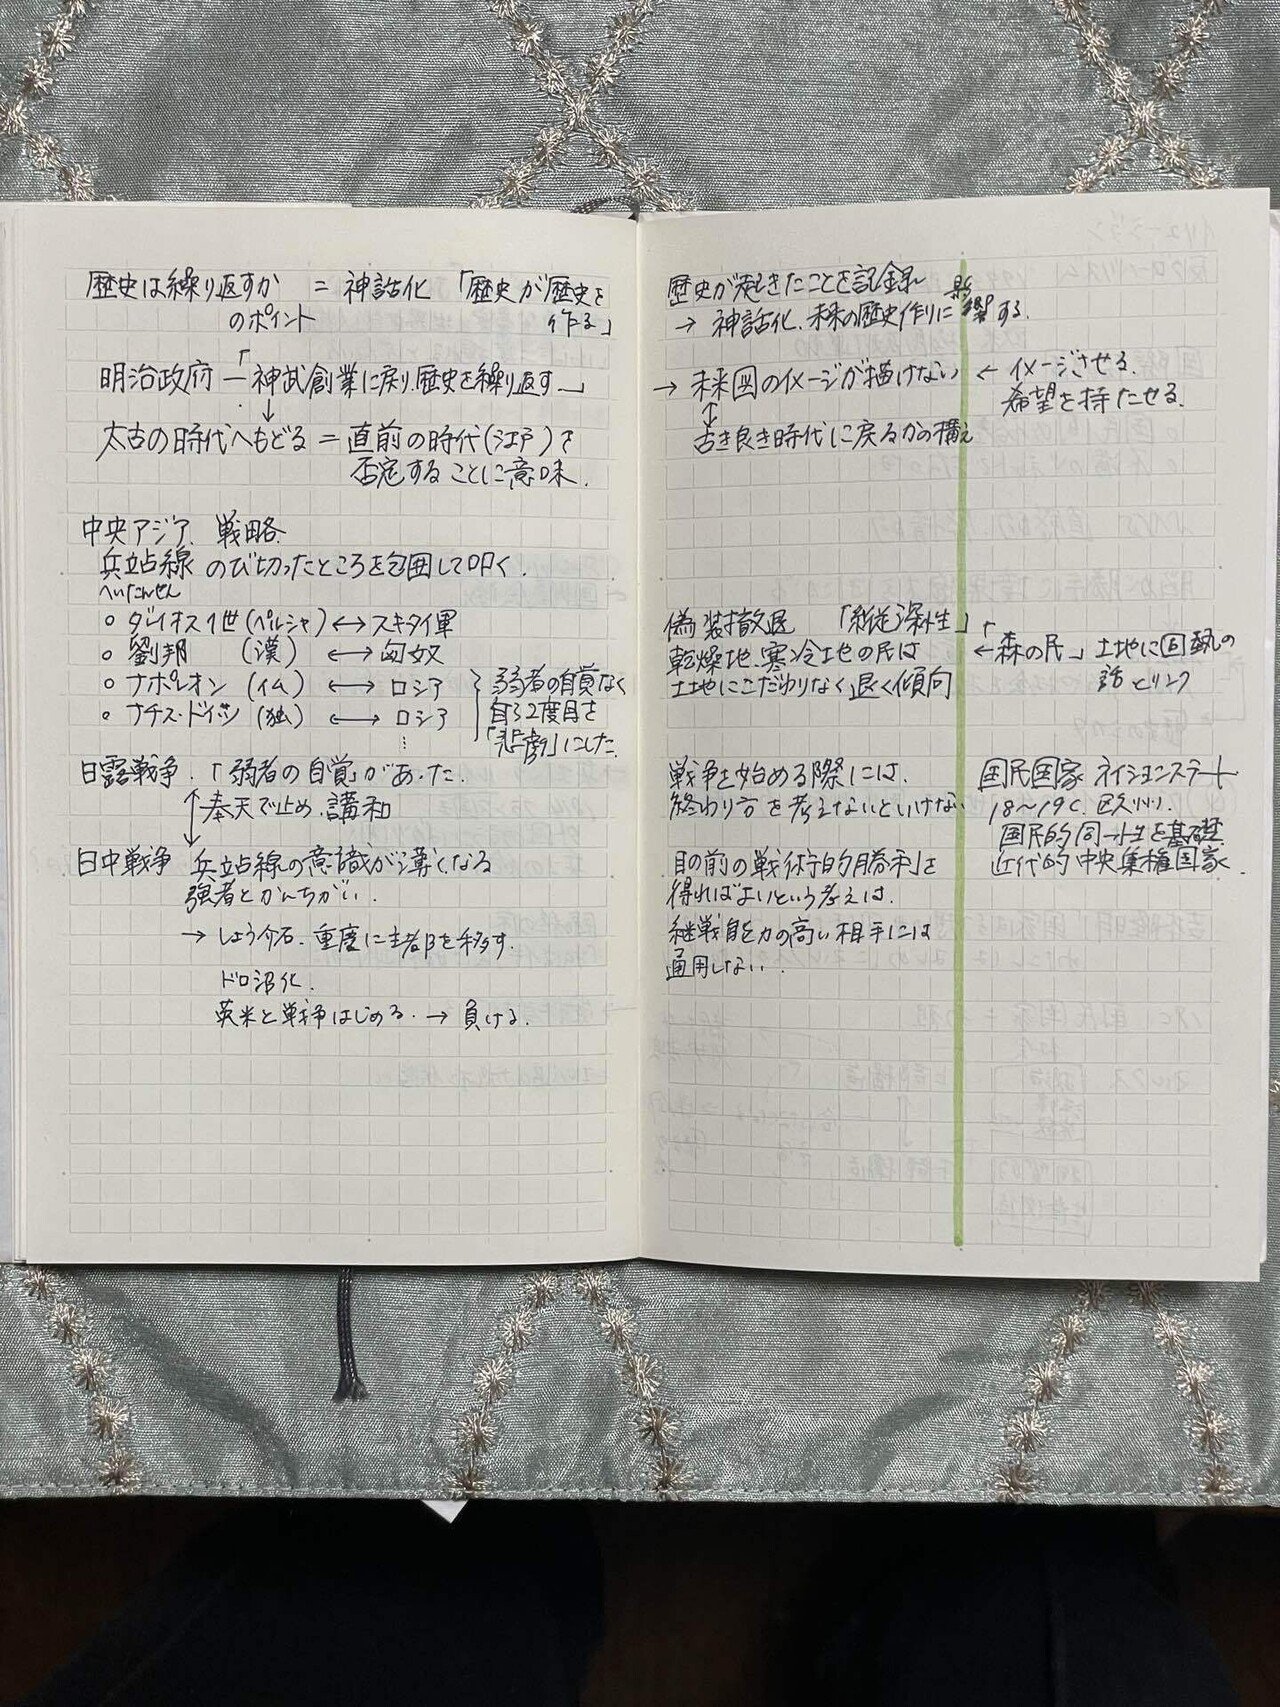 歴史は繰り返すか = 神話化 「歴史が歴史を
のポイント 作る」
明治政府 ― 「神武創業に戻り、歴史を繰り返す」
↓
太古の時代へもどる = 直前の時代(江戸)を
否定することに意味.
中央アジア 戦略
兵站線 のび切ったところを包囲して叩く.
へいたんせん
○ ダレイオス1世(ペルシャ) ↔ スキタイ軍
○ 劉邦 (漢) ↔ 匈奴
○ ナポレオン (仏) ↔ ロシア
○ ナチス・ドイツ (独) ↔ ロシア
弱者の自覚なく
自ら2度目を
「悲劇」にした.
日露戦争. 「弱者の自覚」があった.
↕ 奉天で止め 講和
日中戦争 兵站線の意識が薄くなる
強者とかんちがい.
→ しょう介石. 重慶に首都を移す.
ドロ沼化.
英米と戦争はじめる. → 負ける.
歴史が起きたことを記録
→ 神話化、未来の歴史作りに影響する.
→ 未来図のイメージが描けない ← イメージさせる.
希望を持たせる.
↕
古き良き時代に戻るかの構え
偽装撤退 「縦深性」
乾燥地、寒冷地の民は
土地にこだわりなく退く傾向
← 「森の民」 土地に固執の
話とリンク
戦争を始める際には.
終わり方を考えないといけない
目の前の戦術的勝利を
得ればよいという考えは.
継戦能力の高い相手には
通用しない.
国民国家 ネイションステート
18〜19c. 欧州.
国民的同一性を基礎.
近代的中央集権国家.